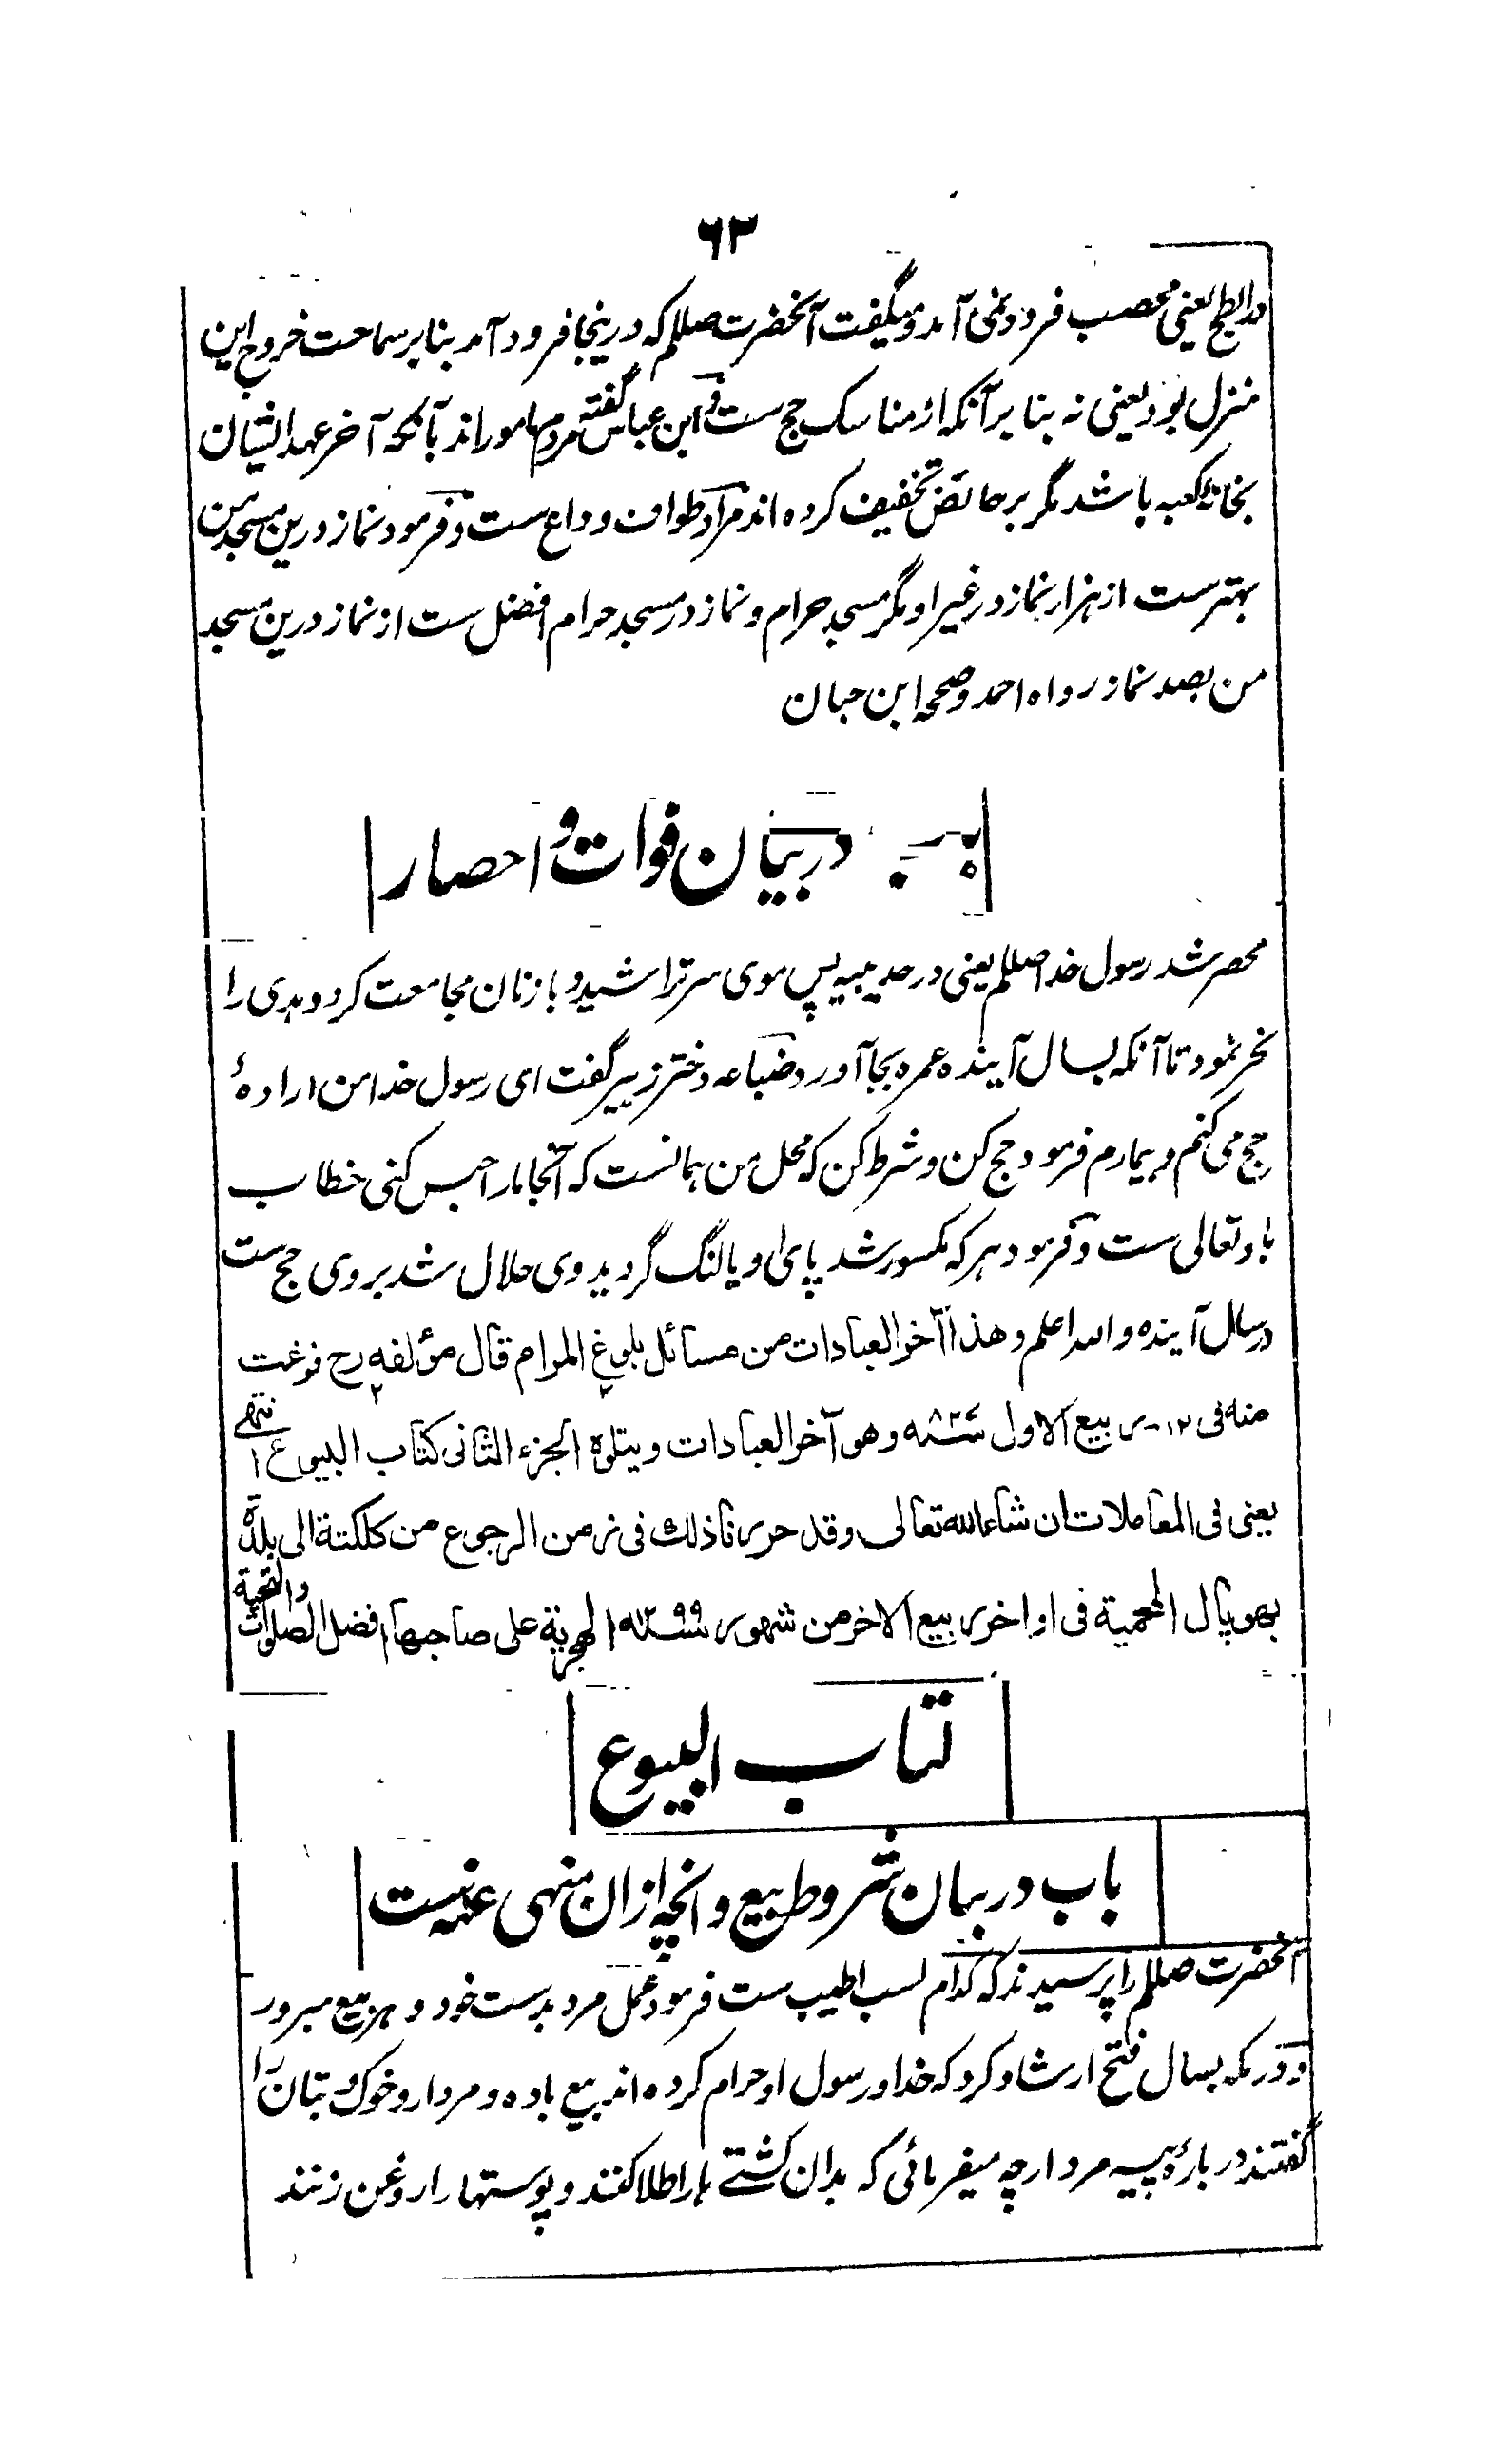 ٦٣
در ابطح یعنی محصب فرود نمی آمد و میگفت آنحضرت صللم که درینجا فرود آمد بنابر سماحت خروج این
منزل بود یعنی نه بنا بر آنکه از مناسک حج ست و ابن عباس گفته مردم مامور اند بآنکه آخر عهد ایشان
بخانۀ کعبه باشد مگر بر حائض تخفیف کرده اند مراد طواف وداع ست و فرمود نماز درین مسجد من
بهترست از هزار نماز در غیر او مگر مسجد حرام و نماز در مسجد حرام افضل ست از نماز درین مسجد
من بصد نماز رواه احمد و صححه ابن حبان
باب در بیان فوات و احصار
محصر شد رسول خدا صللم یعنی در حدیبیه پس موی سر تراشید و با زنان مجامعت کرد و هدی را
نحر نمود تا آنکه بسال آینده عمره بجا آورد ضباعه دختر زبیر گفت ای رسول خدا من ارادۀ
حج می کنم و بیمارم فرمود حج کن و شرط کن که محل من همانست که آنجا مرا حبس کنی خطاب
باو تعالی ست و فرمود هر که مکسور شد پای او یا لنگ گردید وی حلال شد بروی حج ست
در سال آینده والله اعلم وهذا آخر العبادات من مسائل بلوغ المرام قال مؤلفه رح فرغت
منه فی ١٢- ربیع الاول سنه ٨٢٨ وهو آخر العبادات ویتلوه الجزء الثانی کتاب البیوع انتهی
یعنی فی المعاملات ان شاء الله تعالی وقد حررنا ذلك فی زمن الرجوع من کلکتة الی بلدة
بهوپال المحمیة فی اواخر ربیع الاخر من شهور سنه ١٢٩٩ الهجریة علی صاحبها افضل الصلوات والتحیة
کتاب البیوع
باب در بیان شروط بیع و انچه ازان منهی عنه ست
آنحضرت صللم را پرسیدند که کدام کسب اطیب ست فرمود عمل مرد بدست خود و هر بیع مبرور
و در مکه بسال فتح ارشاد کرد که خدا و رسول او حرام کرده اند بیع باده و مردار و خوک و بتان را
گفتند دربارۀ پیه مردار چه میفرمائی که بدان کشتے ها را طلا کنند و پوستها را روغن زنند